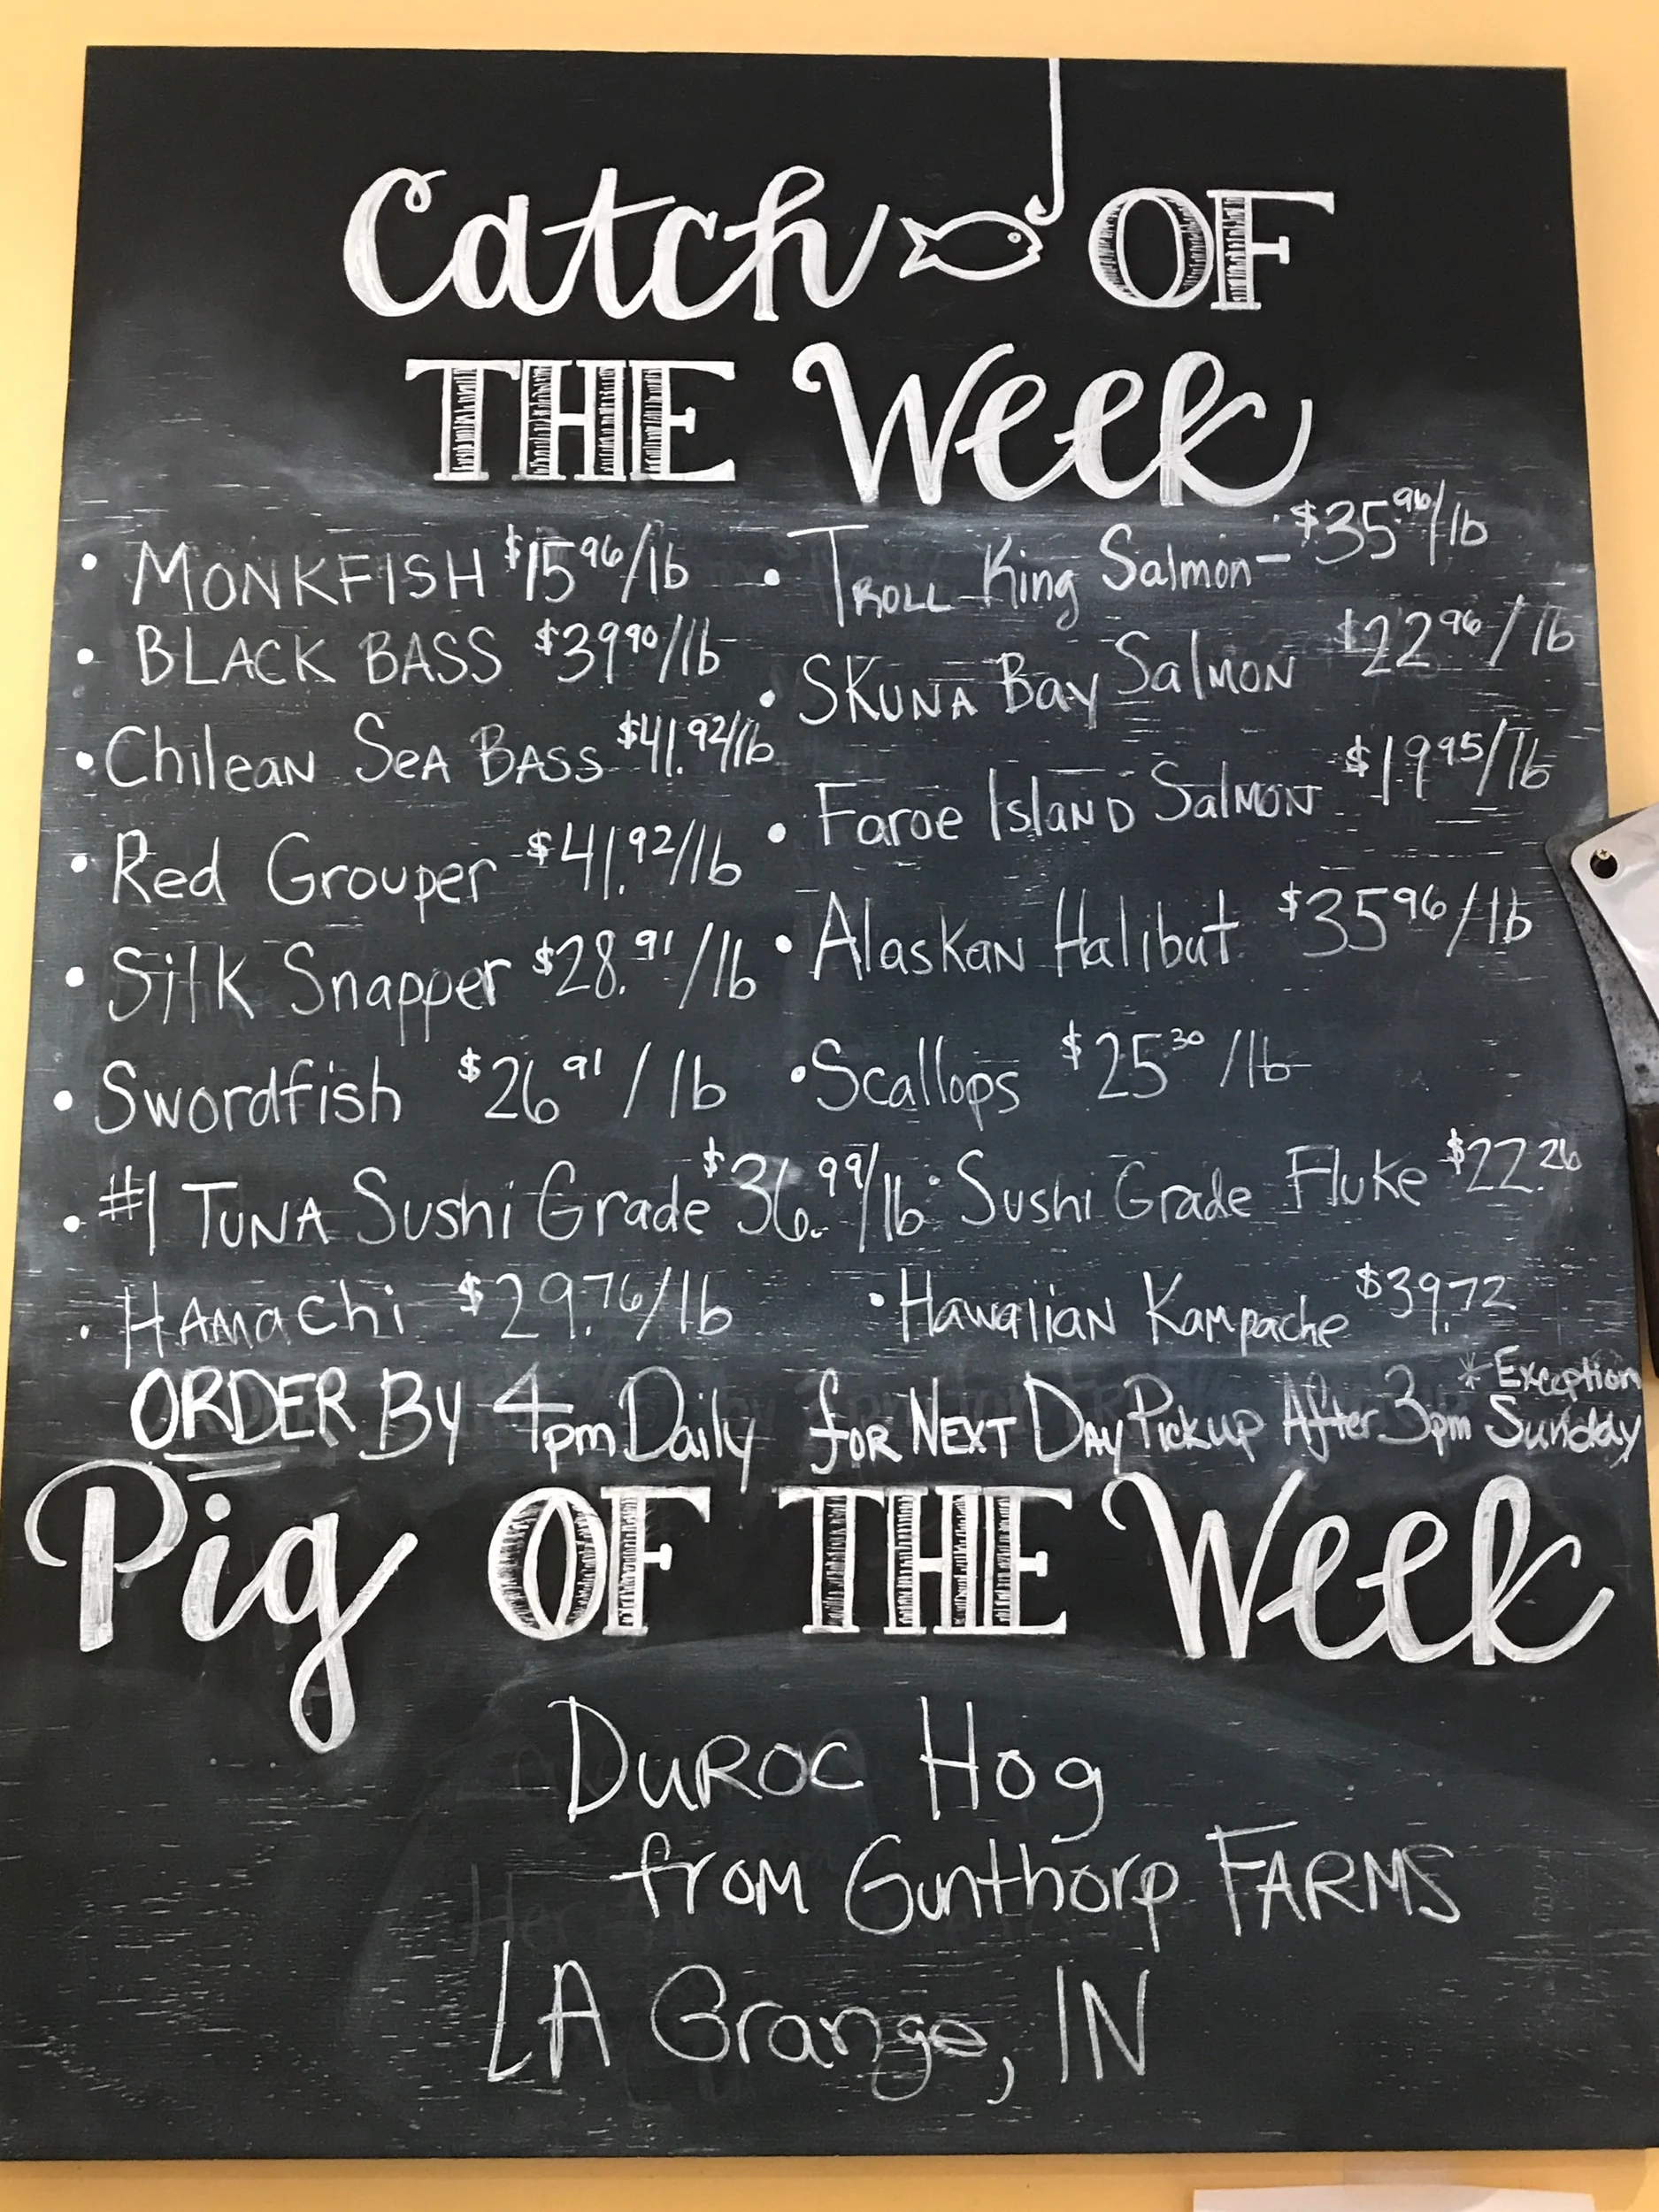 Catch OF
THE Week
• MONKFISH $15 96/lb
• BLACK BASS $39 90/lb
• Chilean Sea Bass $41.92/lb
• Red Grouper $41.92/lb
• Silk Snapper $28.91/lb
• Swordfish $26 91/lb
• #1 Tuna Sushi Grade $36.99/lb
• Hamachi $29.76/lb
• Troll King Salmon - $35 96/lb
• Skuna Bay Salmon $22 96/lb
• Faroe Island Salmon $19 95/lb
• Alaskan Halibut $35 96/lb
• Scallops $25 30/lb
• Sushi Grade Fluke $22.26
• Hawaiian Kampache $39.72
ORDER By 4pm Daily for Next Day Pickup After 3pm * Exception Sunday
Pig OF THE Week
Duroc Hog
from Gunthorp Farms
LA Grange, IN